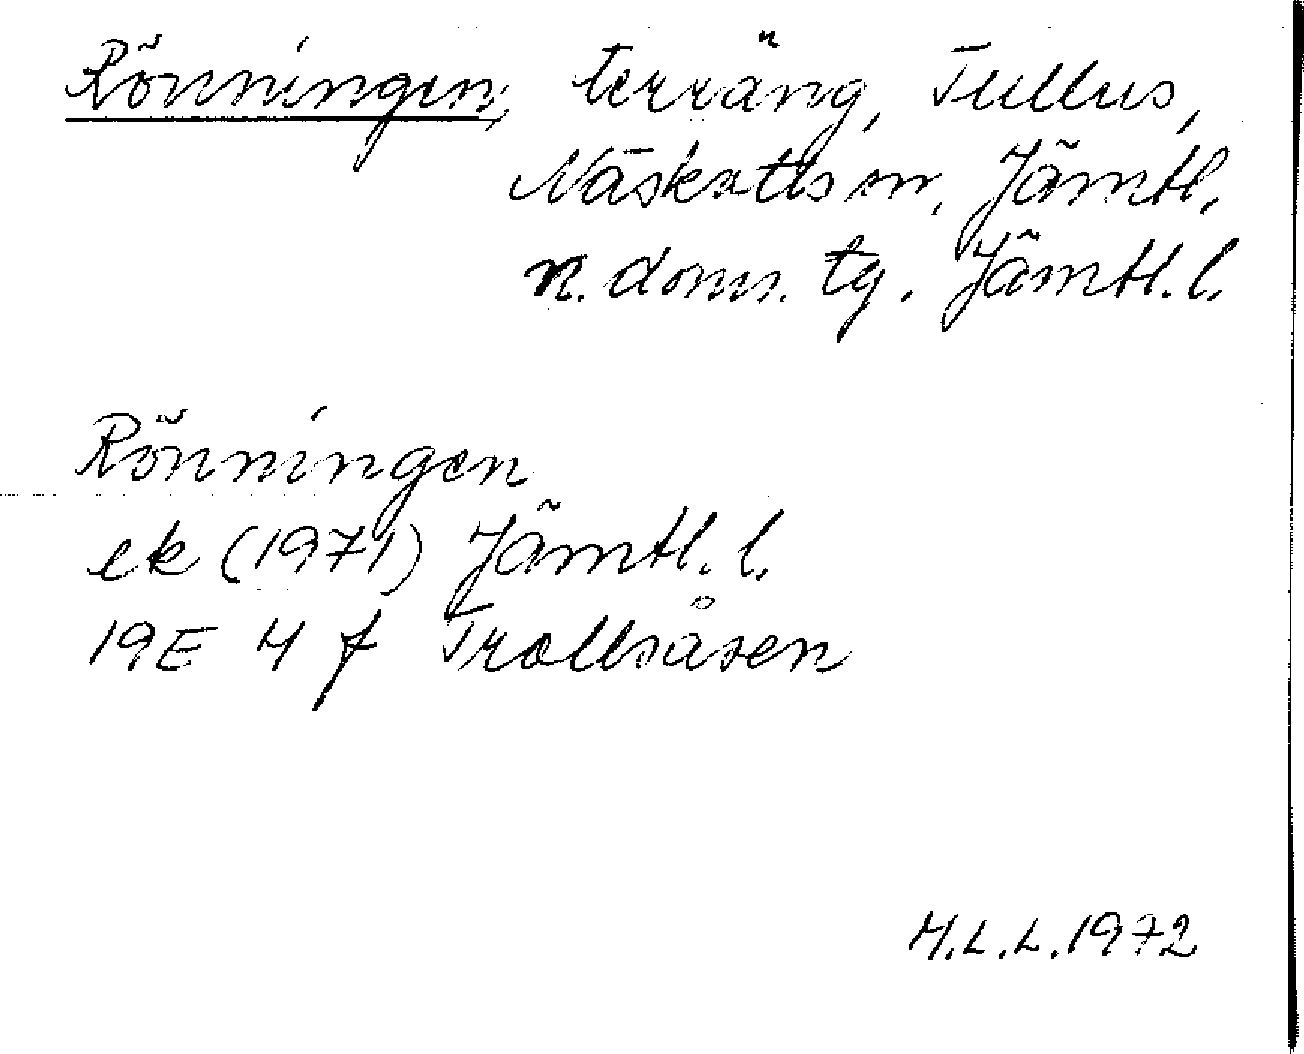 Rönningen, terräng, Tullus,
Näskotts sn, Jämtl.
n. doms. tg. Jämtl. l.
Rönningen
ek (1971) Jämtl. l.
19E 4 f Trollsåsen
M.L.L. 1972